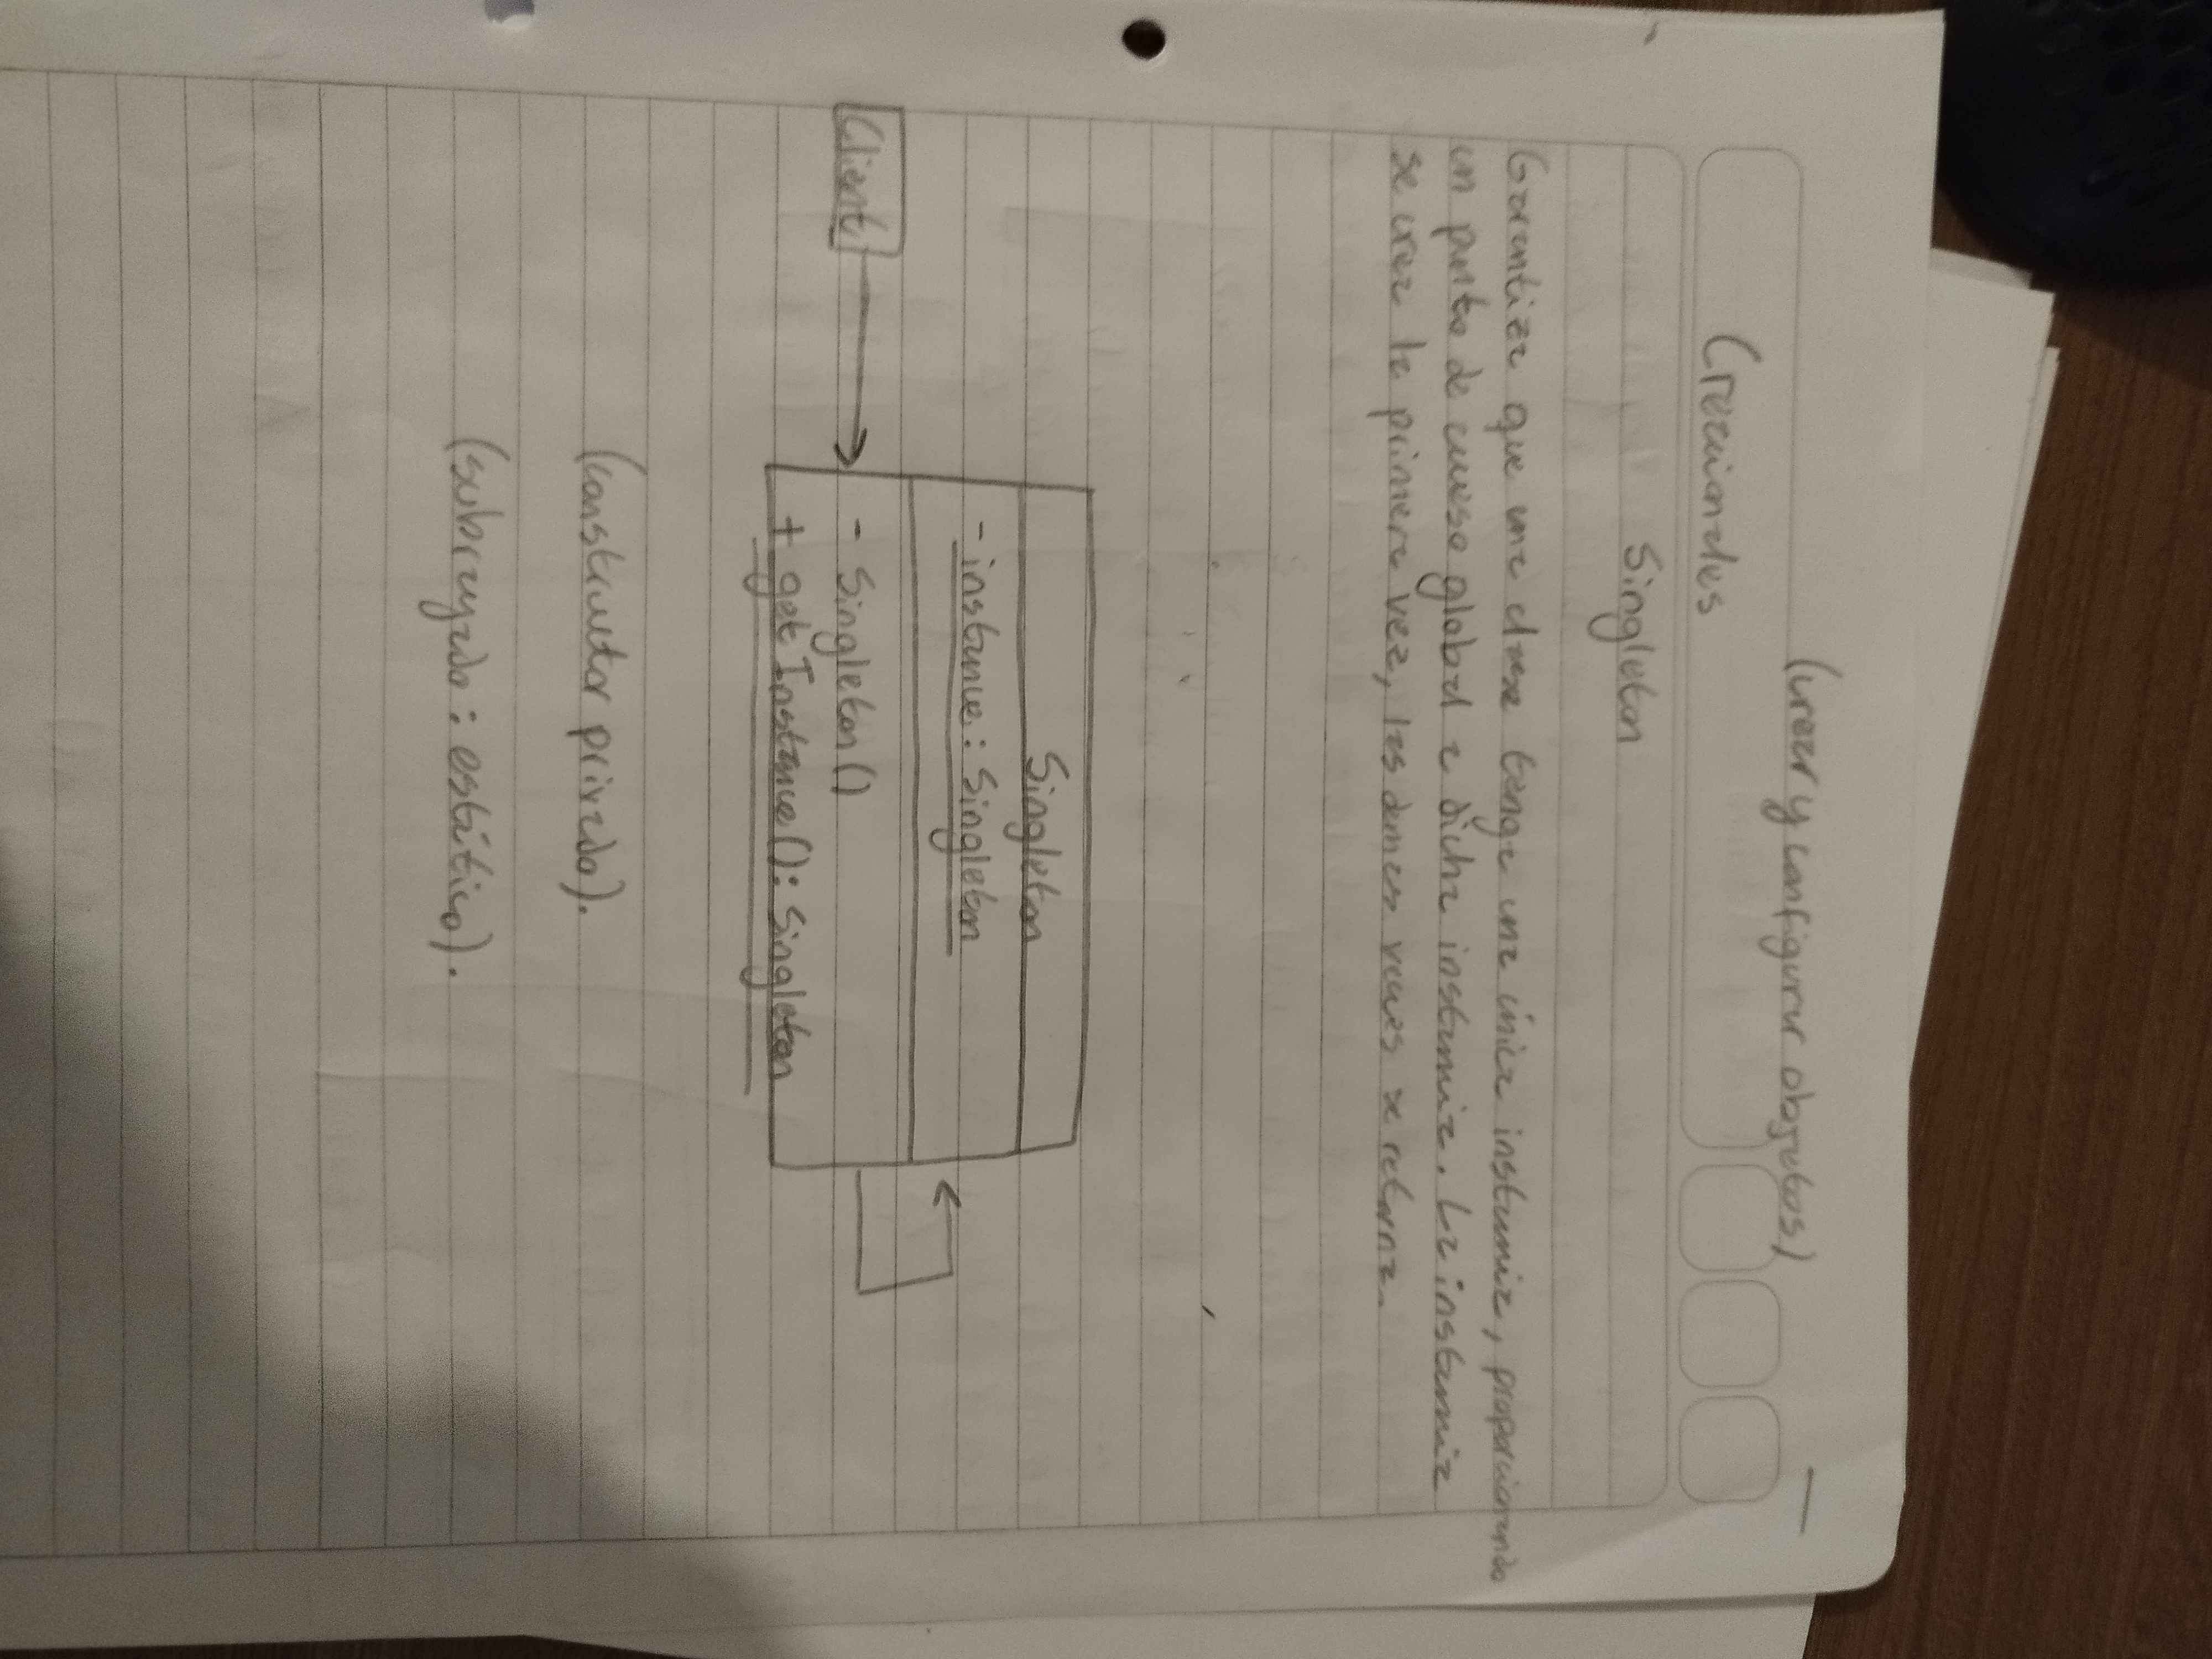 (crear y configurar objetos)
Creacionales
Singleton
Garantiza que una clase tenga una única instancia, proporcionando
un punto de acceso global a dicha instancia. La instancia
se crea la primera vez, las demás veces se retorna.
Singleton
- instance: Singleton
Client
- Singleton()
+ getInstance(): Singleton
(constructor privado).
(subrayado: estático).